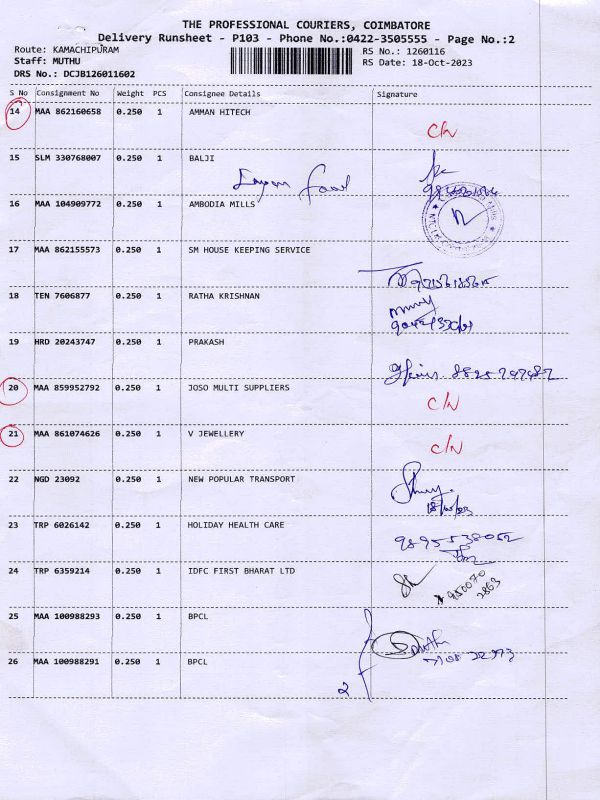 THE PROFESSIONAL COURIERS, COIMBATORE
Delivery Runsheet - P103 - Phone No.:0422-3505555 - Page No.:2
Route: KAMACHIPURAM RS No.: 1260116
Staff: MUTHU RS Date: 18-Oct-2023
DRS No.: DCJB126011602
S No Consignment No Weight PCS Consignee Details Signature
14 MAA 862160658 0.250 1 AMMAN HITECH
C/N
15 SLM 330768007 0.250 1 BALJI
16 MAA 104909772 0.250 1 AMBODIA MILLS
17 MAA 862155573 0.250 1 SM HOUSE KEEPING SERVICE
18 TEN 7606877 0.250 1 RATHA KRISHNAN
19 HRD 20243747 0.250 1 PRAKASH
20 MAA 859952792 0.250 1 JOSO MULTI SUPPLIERS
C/N
21 MAA 861074626 0.250 1 V JEWELLERY
C/N
22 NGD 23092 0.250 1 NEW POPULAR TRANSPORT
23 TRP 6026142 0.250 1 HOLIDAY HEALTH CARE
24 TRP 6359214 0.250 1 IDFC FIRST BHARAT LTD
950070
2863
25 MAA 100988293 0.250 1 BPCL
26 MAA 100988291 0.250 1 BPCL
2